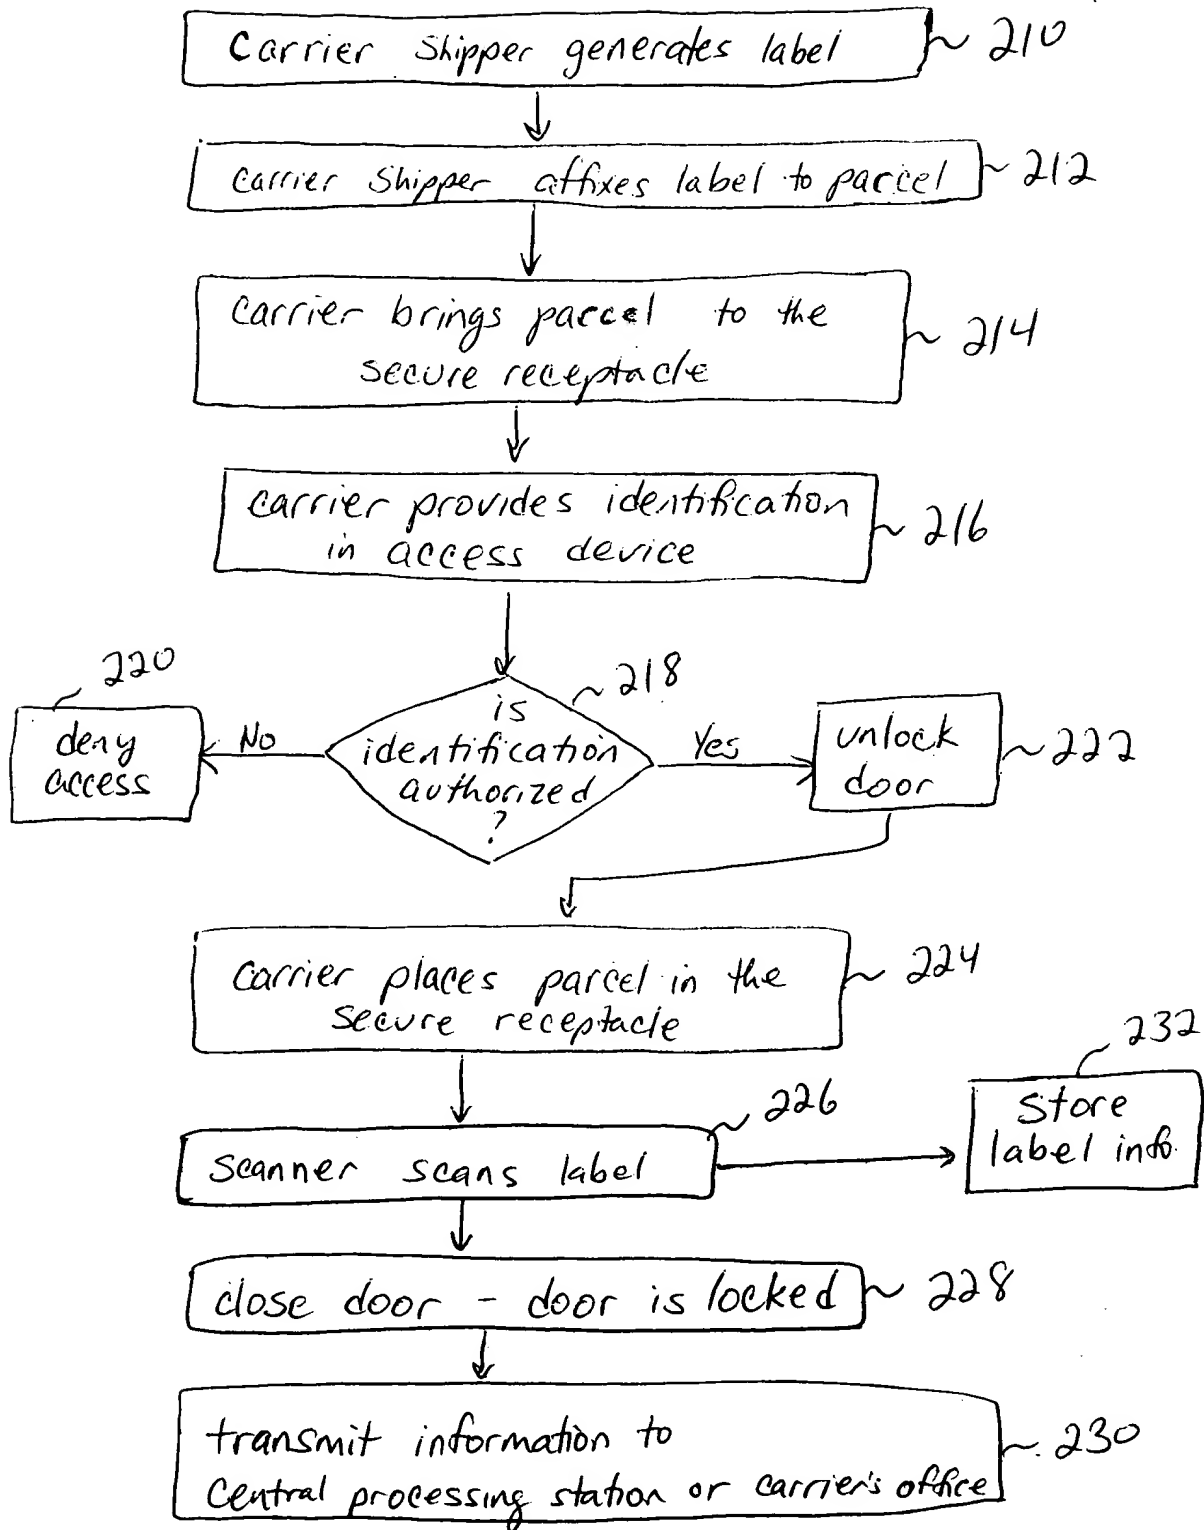 Carrier Shipper generates label 210
Carrier Shipper affixes label to parcel 212
Carrier brings parcel to the 214
secure receptacle
Carrier provides identification 216
in access device
220
218
is
identification
authorized
?
No
Yes
deny
access
unlock 222
door
Carrier places parcel in the 224
secure receptacle
232
226
Store
label info.
Scanner scans label
close door - door is locked 228
transmit information to 230
Central processing station or carrier's office